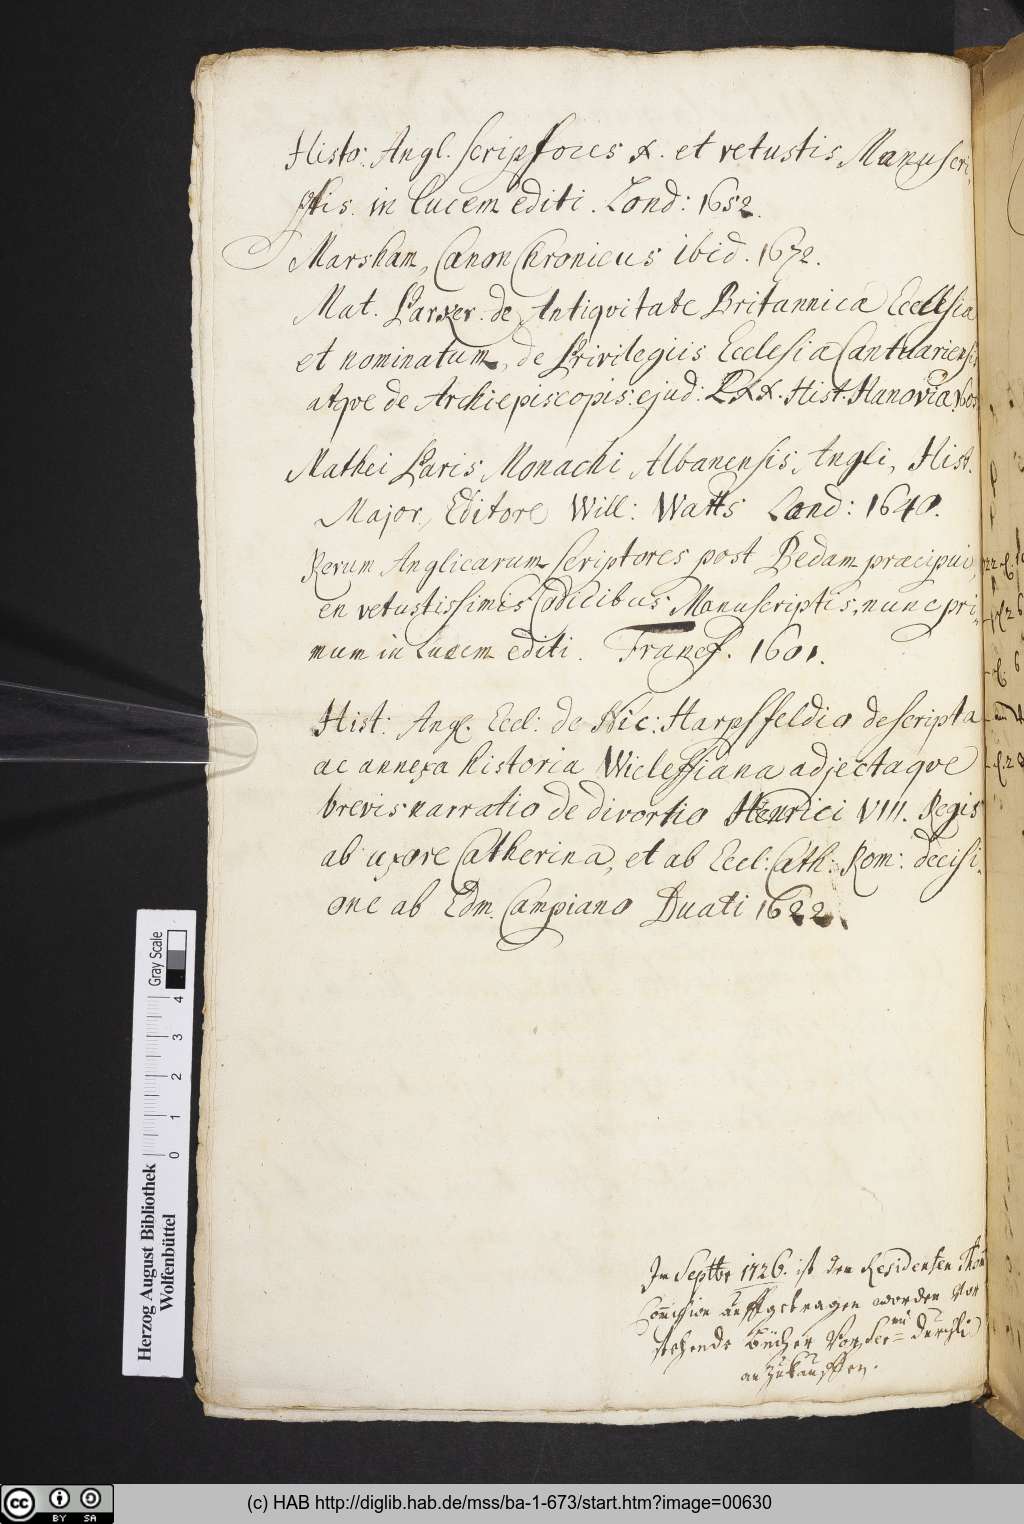 Histo: Angl. scriptores X. et vetustis Manuscri-
ptis. in lucem editi. Lond: 1652.
Marsham, Canon Chronicus ibid. 1672.
Mat. Parker. de Antiqvitate Britannica Ecclesia
et nominatum, de Privilegiis Ecclesia Cantuariensis
atqve de Archiepiscopis ejud: LXX. Hist. Hanovia 1605
Mathei Paris Monachi Albanensis Angli, Hist.
Major, Editore Will: Watts Lond: 1640.
Rerum Anglicarum scriptores post Bedam præcipui,
en vetustissimis Codicibus Manuscriptis, nunc pri-
mum in lucem editi. Francf. 1601.
Hist: Angl. Eccl: de Nic: Harpsfeldio descripta
ac annexa historia Wicleffiana adjectaqve
brevis narratio de divortio Henrici VIII. Regis
ab uxore Catherina, et ab Eccl: Cath: Rom: decisi-
one ab Edm. Campiano Duati 1622.
Im Septbr 1726. ist dem Residenten Thom
Commission auffgetragen worden vor
stehende Bücher vor Ser= mi Durchl.
anzukauffen.
Gray Scale
0 1 2 3 4
Herzog August Bibliothek
Wolfenbüttel
cc BY SA
(c) HAB http://diglib.hab.de/mss/ba-1-673/start.htm?image=00630